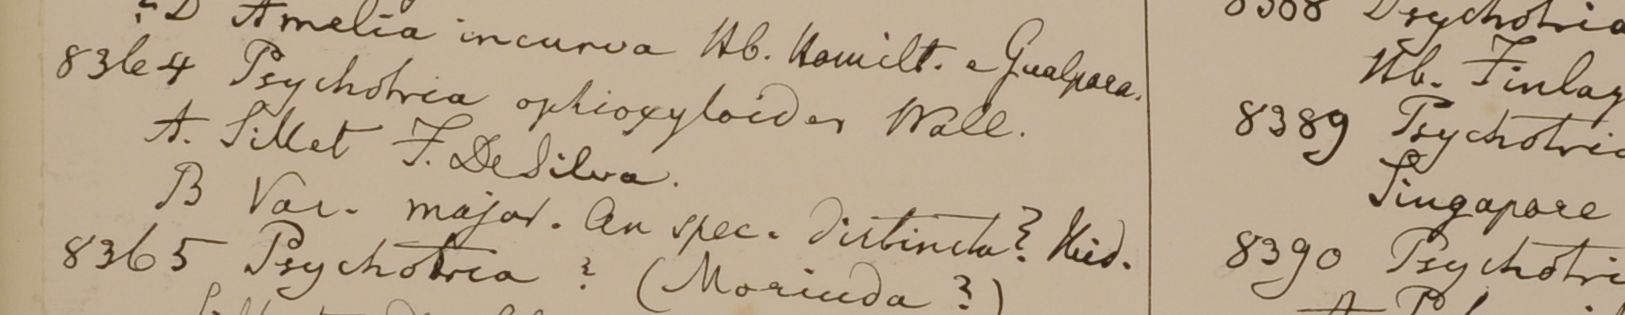 ? D Amelia incurva Hb. Hamilt. e Gualpara.
8364 Psychotria ophioxyloides Wall.
A. Sillet F. De Silva.
B Var. major. An spec. distincta? Ibid.
8365 Psychotria ? (Morinda ?)
8388 Psychotria
Hb. Finlay
8389 Psychotri
Singapore
8390 Psychotri